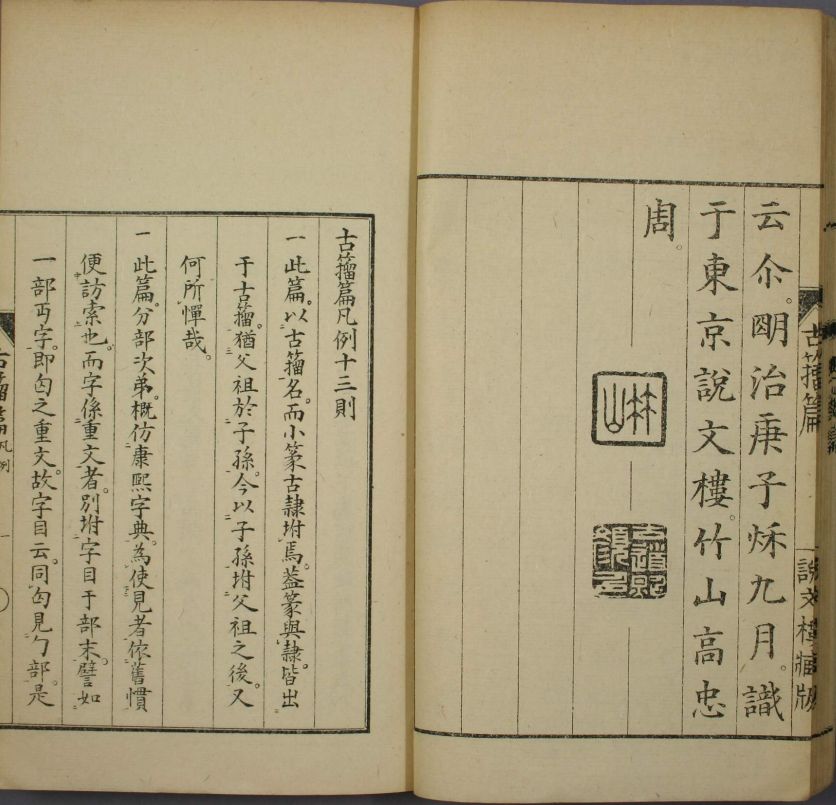 云尒。明治庚子秌九月。識
于東京說文樓。竹山高忠
周。
古籀篇
說文樓藏版
古籀篇凡例十三則
一此篇。以古籀名。而小篆古隷坿焉。葢篆與隷。皆出
于古籀。猶父祖於子孫。今以子孫坿父祖之後。又
何所憚哉。
一此篇。分部次弟。概仿康熙字典。為使見者依舊慣
便訪索也。而字係重文者。別坿字目于部末。譬如
一部丏字。即匃之重文。故字目云。同匃見勹部。是
古籀篇凡例
一